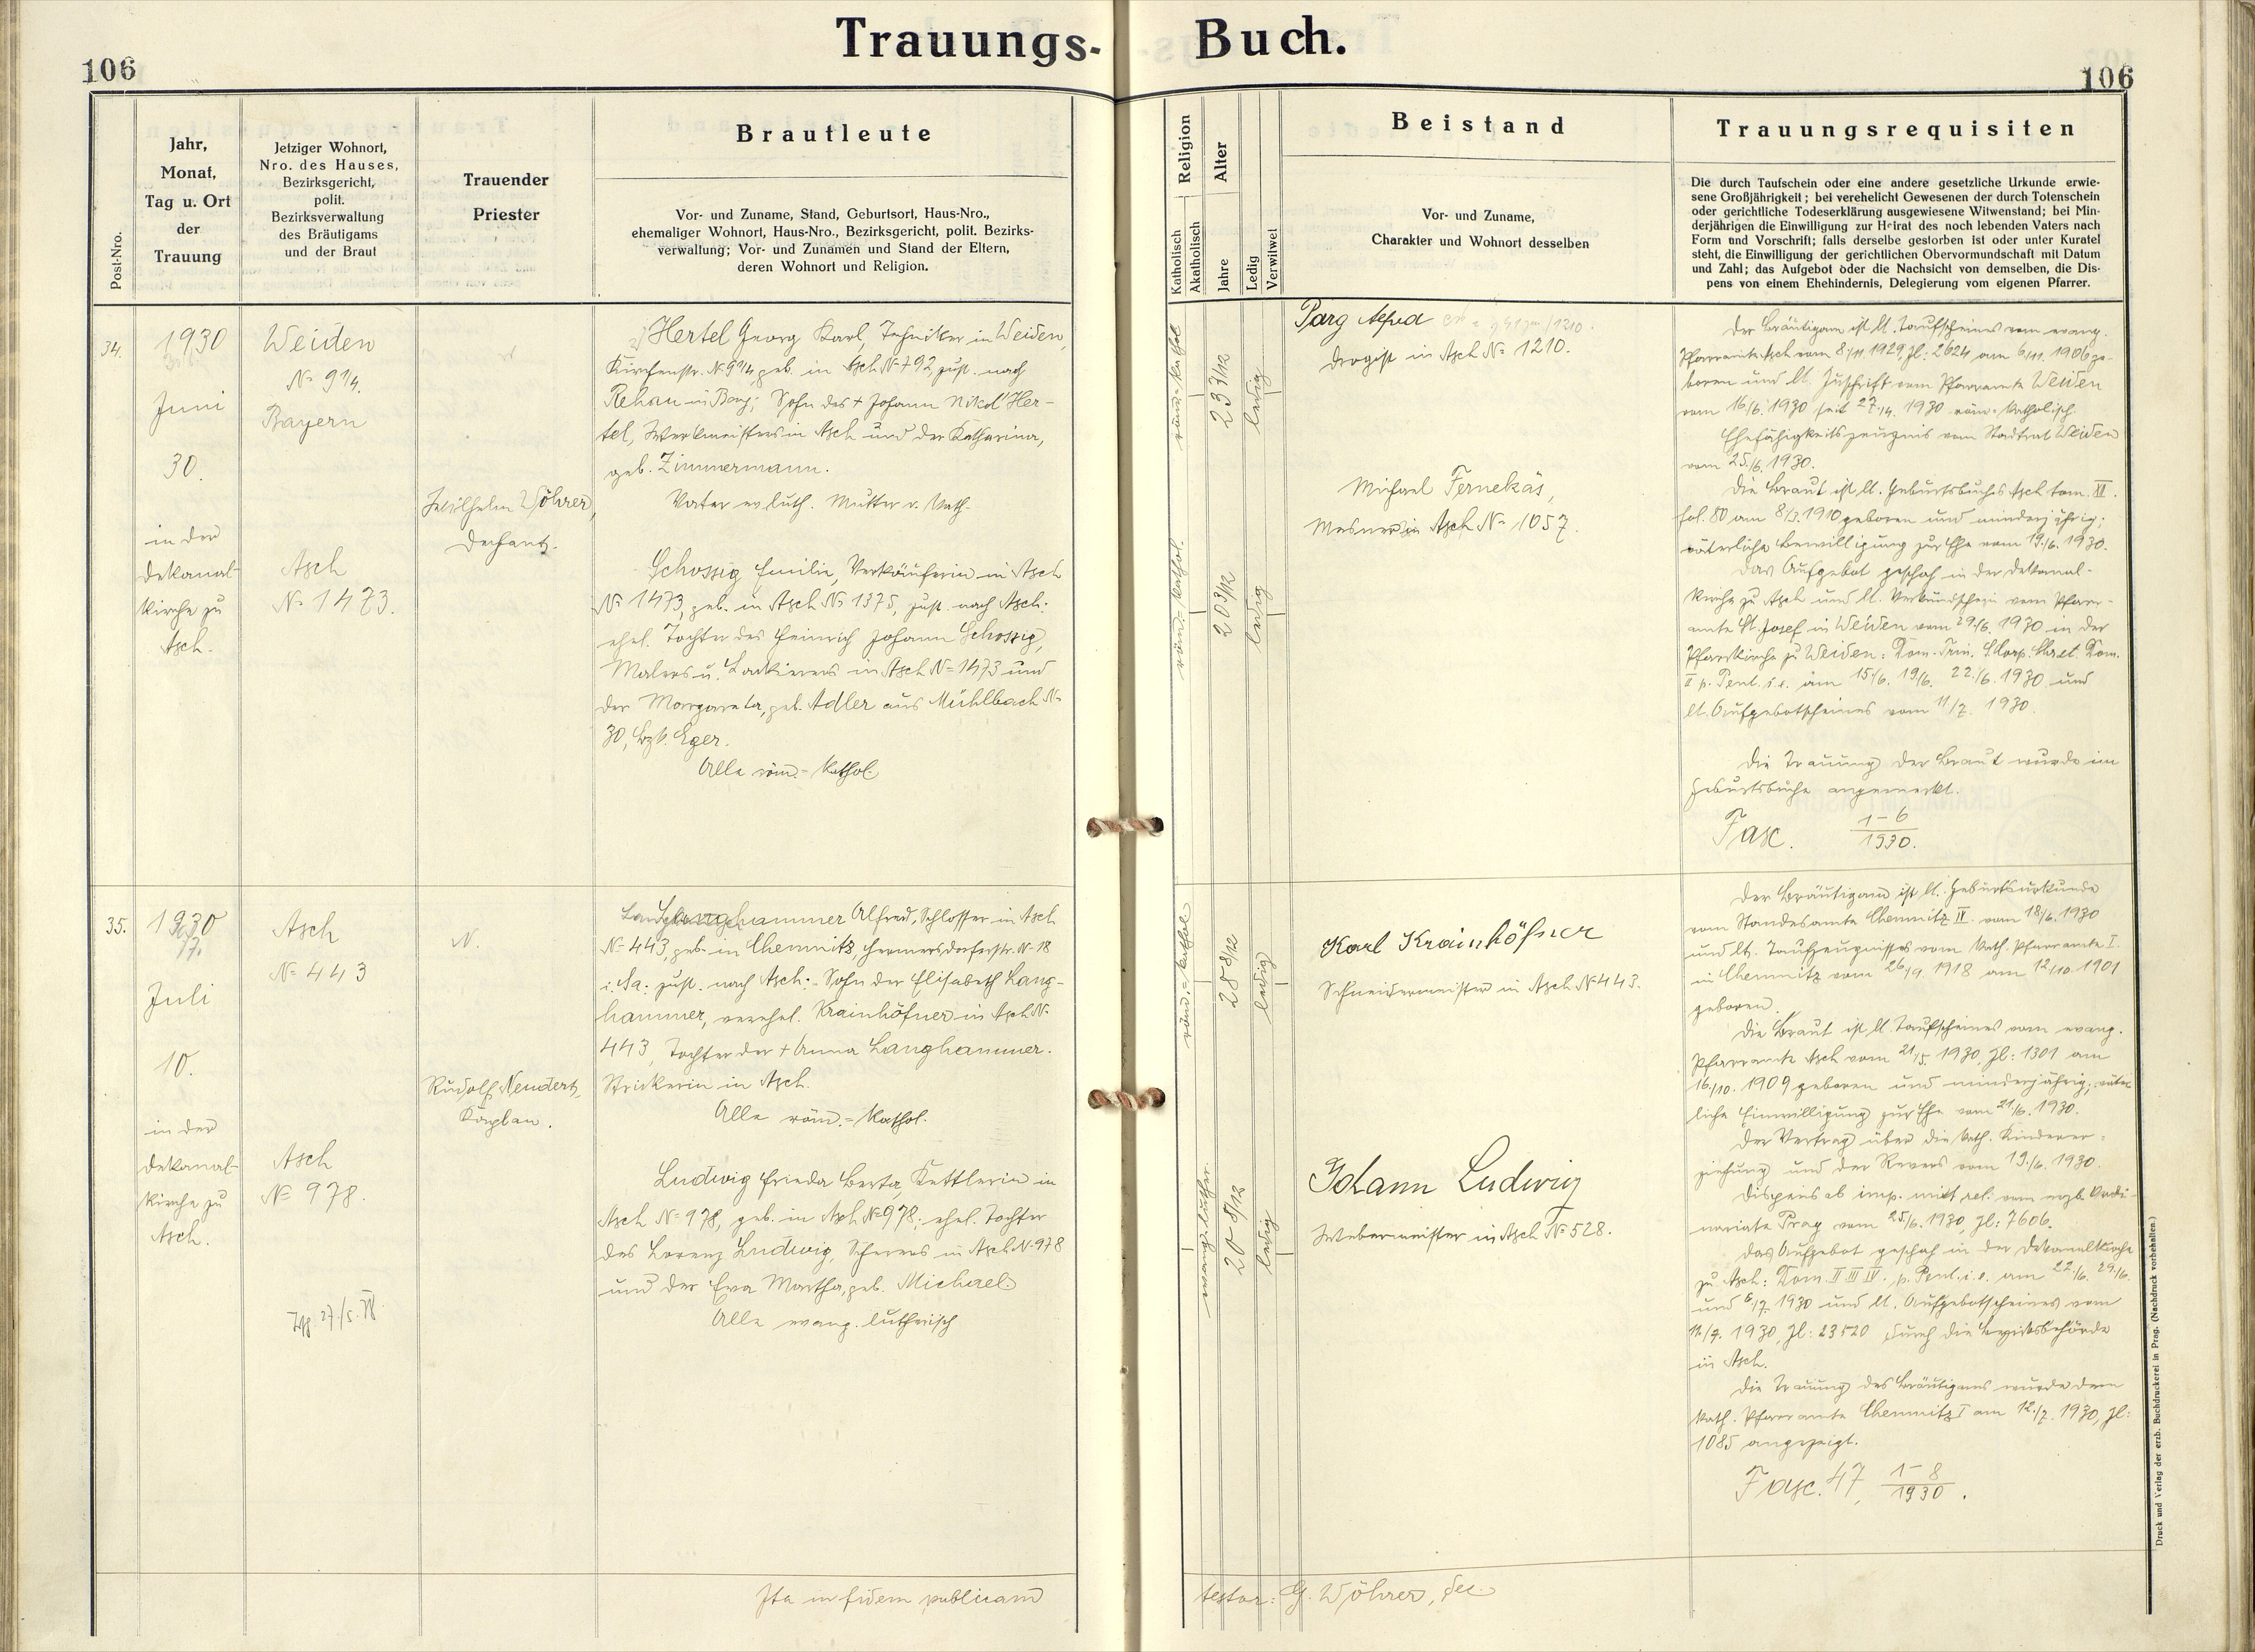 Trauungs- Buch.
106
106
Post-Nro.
Jahr,
Monat,
Tag u. Ort
der
Trauung
Jetziger Wohnort,
Nro. des Hauses,
Bezirksgericht,
polit.
Bezirksverwaltung
des Bräutigams
und der Braut
Trauender
Priester
Brautleute
Vor- und Zuname, Stand, Geburtsort, Haus-Nro.,
ehemaliger Wohnort, Haus-Nro., Bezirksgericht, polit. Bezirks-
verwaltung; Vor- und Zunamen und Stand der Eltern,
deren Wohnort und Religion.
Religion
Katholisch
Akatholisch
Alter
Jahre
Ledig
Verwitwet
Beistand
Vor- und Zuname,
Charakter und Wohnort desselben
Trauungsrequisiten
Die durch Taufschein oder eine andere gesetzliche Urkunde erwie-
sene Großjährigkeit; bei verehelicht Gewesenen der durch Totenschein
oder gerichtliche Todeserklärung ausgewiesene Witwenstand; bei Min-
derjährigen die Einwilligung zur Heirat des noch lebenden Vaters nach
Form und Vorschrift; falls derselbe gestorben ist oder unter Kuratel
steht, die Einwilligung der gerichtlichen Obervormundschaft mit Datum
und Zahl; das Aufgebot oder die Nachsicht von demselben, die Dis-
pens von einem Ehehindernis, Delegierung vom eigenen Pfarrer.
34.
1930
Juni
30.
in der
Dekanal-
kirche zu
Asch.
Weiden
No 9¼.
Bayern
Asch
No 1473.
Wilhelm Wöhrer,
Dechant.
Hertel Georg Karl, Techniker in Weiden,
Kirchenstr. No 9¼, geb. in Asch No 792, zust. nach
Rehau in Bay; Sohn des + Johann Nikol Her-
tel, Werkmeisters in Asch und der Katharina,
geb. Zimmermann.
Vater ev. luth. Mutter r. kath.
Schossig Emilie, Verkäuferin in Asch
No 1473, geb. in Asch No 1375, zust. nach Asch:
ehel. Tochter des Heinrich Johann Schossig,
Malers u. Lackierers in Asch No 1473 und
der Margareta, geb. Adler aus Mühlbach No
30, Bzk. Eger.
Alle röm.-kathol.
röm.-kathol.
23 7/12
ledig
röm.-kathol.
20 3/12
ledig
Parg Alfred
Drogist in Asch No 1210.
Michael Fernekäs,
Mesner in Asch No 1057.
Der Bräutigam ist lt. Taufscheines vom evang.
Pfarramte Asch vom 8/11 1929, Zl: 2624 am 6/11. 1906 ge-
boren und lt. Zuschrift vom Pfarramte Weiden
vom 16/6. 1930 seit 27/4. 1930 röm-katholisch.
Ehefähigkeitszeugnis vom Stadtrat Weiden
vom 25./6. 1930.
Die Braut ist lt. Geburtsbuches Asch tom. XI.
fol. 80 am 8/3. 1910 geboren und minderjährig;
väterliche Bewilligung zur Ehe vom 19./6. 1930.
Das Aufgebot geschah in der Dekanal-
kirche zu Asch und lt. Verkündschein vom Pfarr-
amte St. Josef in Weiden vom 29/6. 1930 in der
Pfarrkirche zu Weiden: Dom. Trin. S. Corp. Christ. Dom.
II p. Pent. i. e. am 15./6. 19/6. 22./6. 1930 und
lt. Aufgebotscheines vom 11/7. 1930.
Die Trauung der Braut wurde im
Geburtsbuche angemerkt.
Fasc. 1-6
1930.
35.
1930
Juli
10.
in der
Dekanal-
kirche zu
Asch.
Asch
No 443
Asch
No 978.
N.
Rudolf Neudert,
Kaplan.
Langhammer Alfred, Schlosser in Asch
No 443, geb. in Chemnitz, Hermersdorferstr. No 18
i. Sa. zust. nach Asch: Sohn der Elisabeth Lang-
hammer, verehel. Krainhöfner in Asch No
443, Tochter der + Anna Langhammer.
Strickerin in Asch.
Alle röm.-kathol.
Ludwig Frieda Berta, Kettlerin in
Asch No 978, geb. in Asch No 978; ehel. Tochter
des Lorenz Ludwig, Scherers in Asch No 978
und der Eva Martha, geb. Michael
Alle evang. lutherisch
röm.-kathol.
28 8/12
ledig
evang.-luther.
20 8/12
ledig
Karl Krainhöfner
Schneidermeister in Asch No 443.
Johann Ludwig
Webermeister in Asch No 528.
Der Bräutigam ist lt. Geburtsurkunde
vom Standesamte Chemnitz IV. vom 18/6. 1930
und lt. Taufzeugnisses vom kath. Pfarramte I.
in Chemnitz vom 26/9. 1918 am 12/10. 1901
geboren.
Die Braut ist lt. Taufscheines vom evang.
Pfarramte Asch vom 21/5 1930, Zl: 1301 am
16./10. 1909 geboren und minderjährig; väter
liche Einwilligung zur Ehe vom 21./6. 1930.
Der Vertrag über die kath. Kinderer-
ziehung und der Revers vom 19./6. 1930.
Dispens ab imp. mixt. rel. vom erzb. Ordi-
nariate Prag vom 25/6. 1930, Zl: 7606.
Das Aufgebot geschah in der Dekanalkirche
zu Asch: Dom. II III IV. p. Pent. i. e. am 22./6. 29./6.
und 6./7. 1930 und lt. Aufgebotscheines vom
11./7. 1930, Zl: 23520 durch die Bezirksbehörde
in Asch.
Die Trauung des Bräutigams wurde dem
kath. Pfarramte Chemnitz I am 12./7. 1930, Zl:
1085 angezeigt.
Fasc. 47, 1-8
1930.
Ita in fidem publicam
testor: G. Wöhrer, dec.
Druck und Verlag der erzb. Buchdruckerei in Prag. (Nachdruck vorbehalten.)